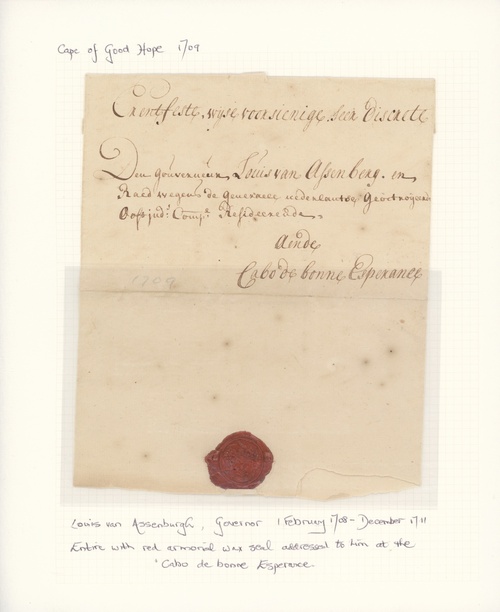 Cape of Good Hope 1709
Erentfeste, wyse voorsienige seer discrete
Den gouverneur, Louis van Assenberg. en
Raed wegens de generaele nederlantse Geoctroyeerde
Oostjnd: Comp: Resideerende,
Aende
Cabo de bonne Esperance
1709
Louis van Assenburgh, Governor 1 February 1708 - December 1711
Entire with red armorial wax seal addressed to him at the
'Cabo de bonne Esperance.